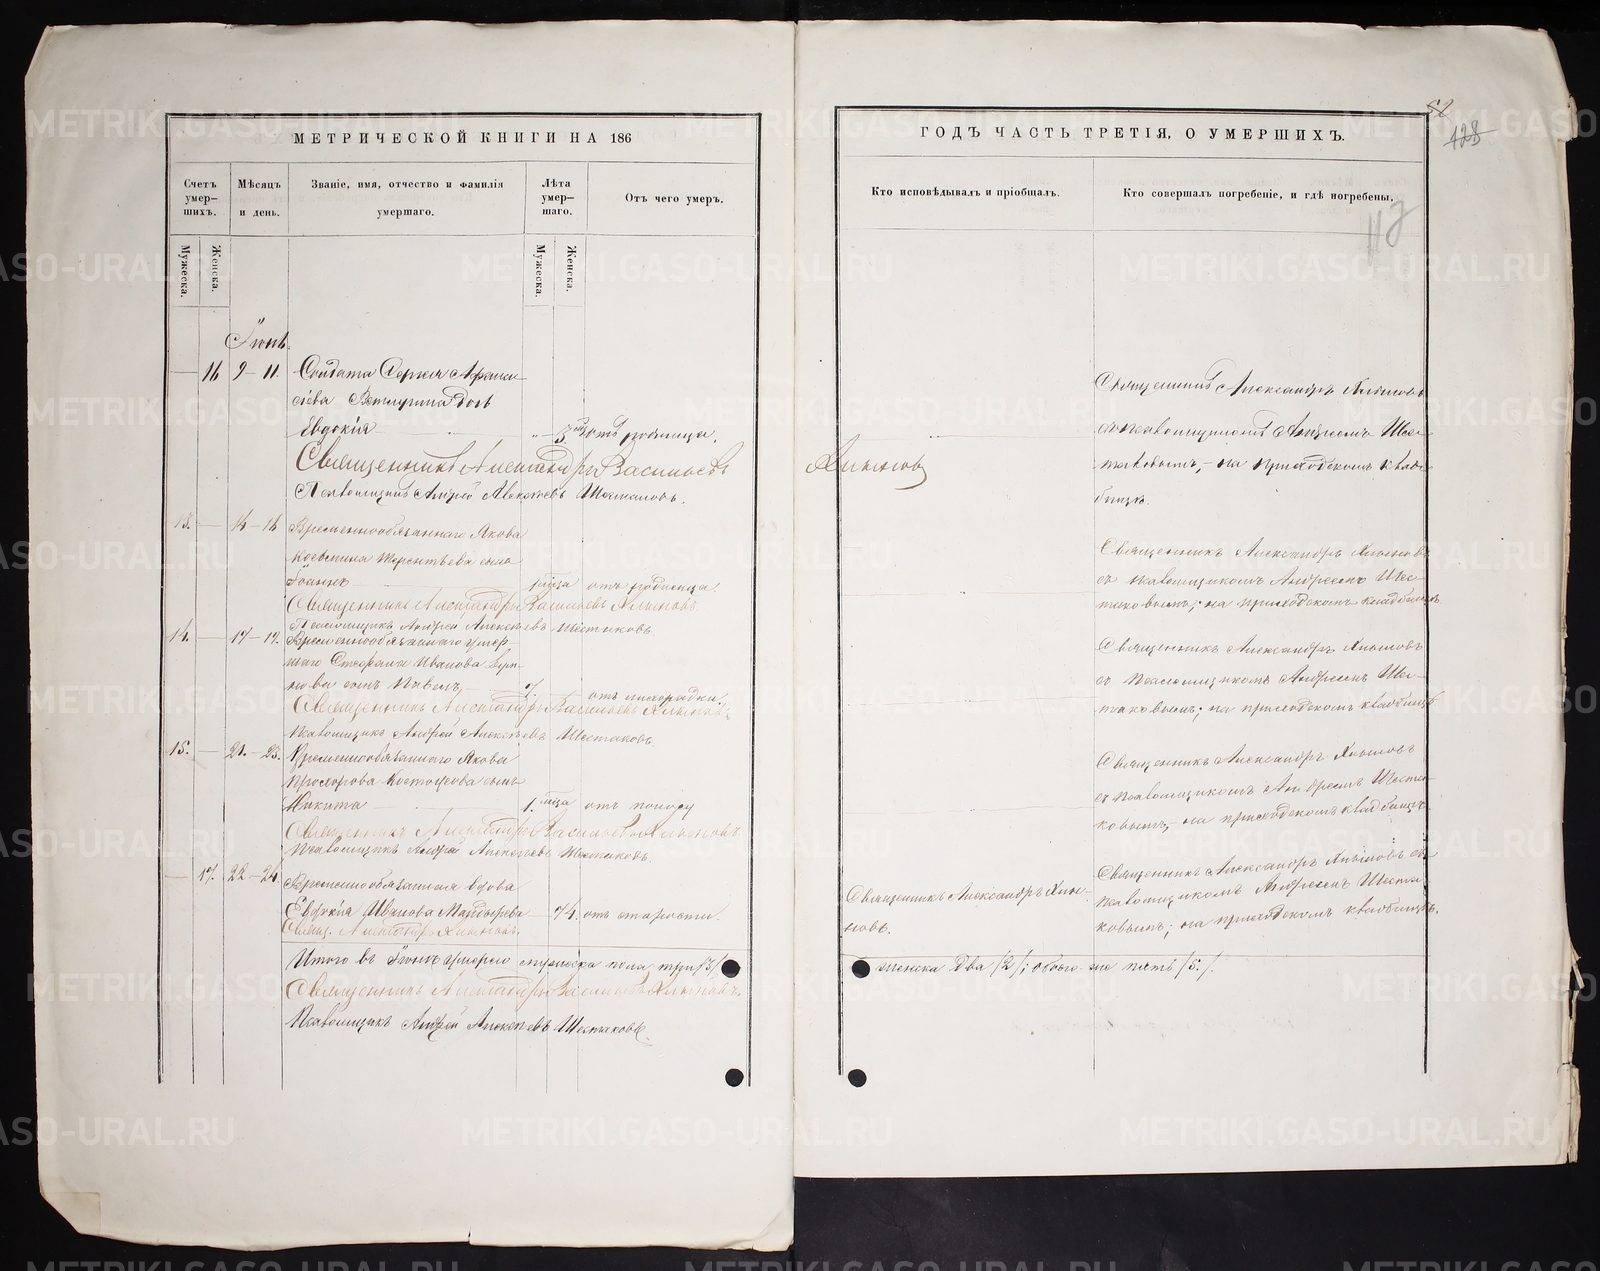 МЕТРИЧЕСКОЙ КНИГИ НА 186
Счетъ умер-шихъ.
Мѣсяцъ и день.
Званіе, имя, отчество и фамилія умершаго.
Лѣта умер-шаго.
Отъ чего умеръ.
Мужеска.
Женска.
Мужеска.
Женска.
Іюнь.
16 9-11. Солдата Сергея Афанась-
ева дочь
Евдокія 3 отъ родимца.
Священникъ Александръ Васильевъ
Псаломщикъ Андрей Алексѣевъ Шестаковъ.
13. 14-16 Временнообязаннаго Якова
Терентьева сынъ
Іоаннъ 1 мѣсца отъ родимца
Священникъ Александръ Васильевъ Хлыновъ
Псаломщикъ Андрей Алексѣевъ Шестаковъ.
14. 17-19. Временнообязаннаго умер-
шаго Стефана Иванова
сынъ Павелъ 7. отъ лихорадки.
Священникъ Александръ Васильевъ Хлыновъ
Псаломщикъ Андрей Алексѣевъ Шестаковъ
15. 21.-23. Временнообязаннаго Якова
Прохорова сынъ
Никита 1. мѣсца отъ поносу
Священникъ Александръ Васильевъ Хлыновъ
Псаломщикъ Андрей Алексѣевъ Шестаковъ.
17. 22-24. Временнообязанная вдова
Евдокія Иванова 74. отъ старости.
Свящ. Александръ Хлыновъ.
Итого въ Іюнѣ умерло мужеска пола три /3/
Священникъ Александръ Васильевъ Хлыновъ.
Псаломщикъ Андрей Алексѣевъ Шестаковъ.
52
128
113
ГОДЪ ЧАСТЬ ТРЕТІЯ, О УМЕРШИХЪ.
Кто исповѣдывалъ и пріобщалъ.
Кто совершалъ погребеніе, и гдѣ погребены.
Священникъ Александръ Хлыновъ
съ псаломщикомъ Андреемъ Шес-
таковымъ, на приходскомъ клад-
бищѣ.
Хлыновъ
Священникъ Александръ Хлыновъ
съ псаломщикомъ Андреемъ Шес-
таковымъ; на приходскомъ кладбищѣ
Священникъ Александръ Хлыновъ
съ псаломщикомъ Андреемъ Шес-
таковымъ; на приходскомъ кладбищѣ
Священникъ Александръ Хлыновъ
съ псаломщикомъ Андреемъ Шеста-
ковымъ, на приходскомъ кладбищѣ
Священникъ Александръ Хлы-
новъ.
Священникъ Александръ Хлыновъ съ
псаломщикомъ Андреемъ Шеста-
ковымъ; на приходскомъ кладбищѣ.
женска два /2/; обоего же пять /5./.
METRIKI.GASO-URAL.RU